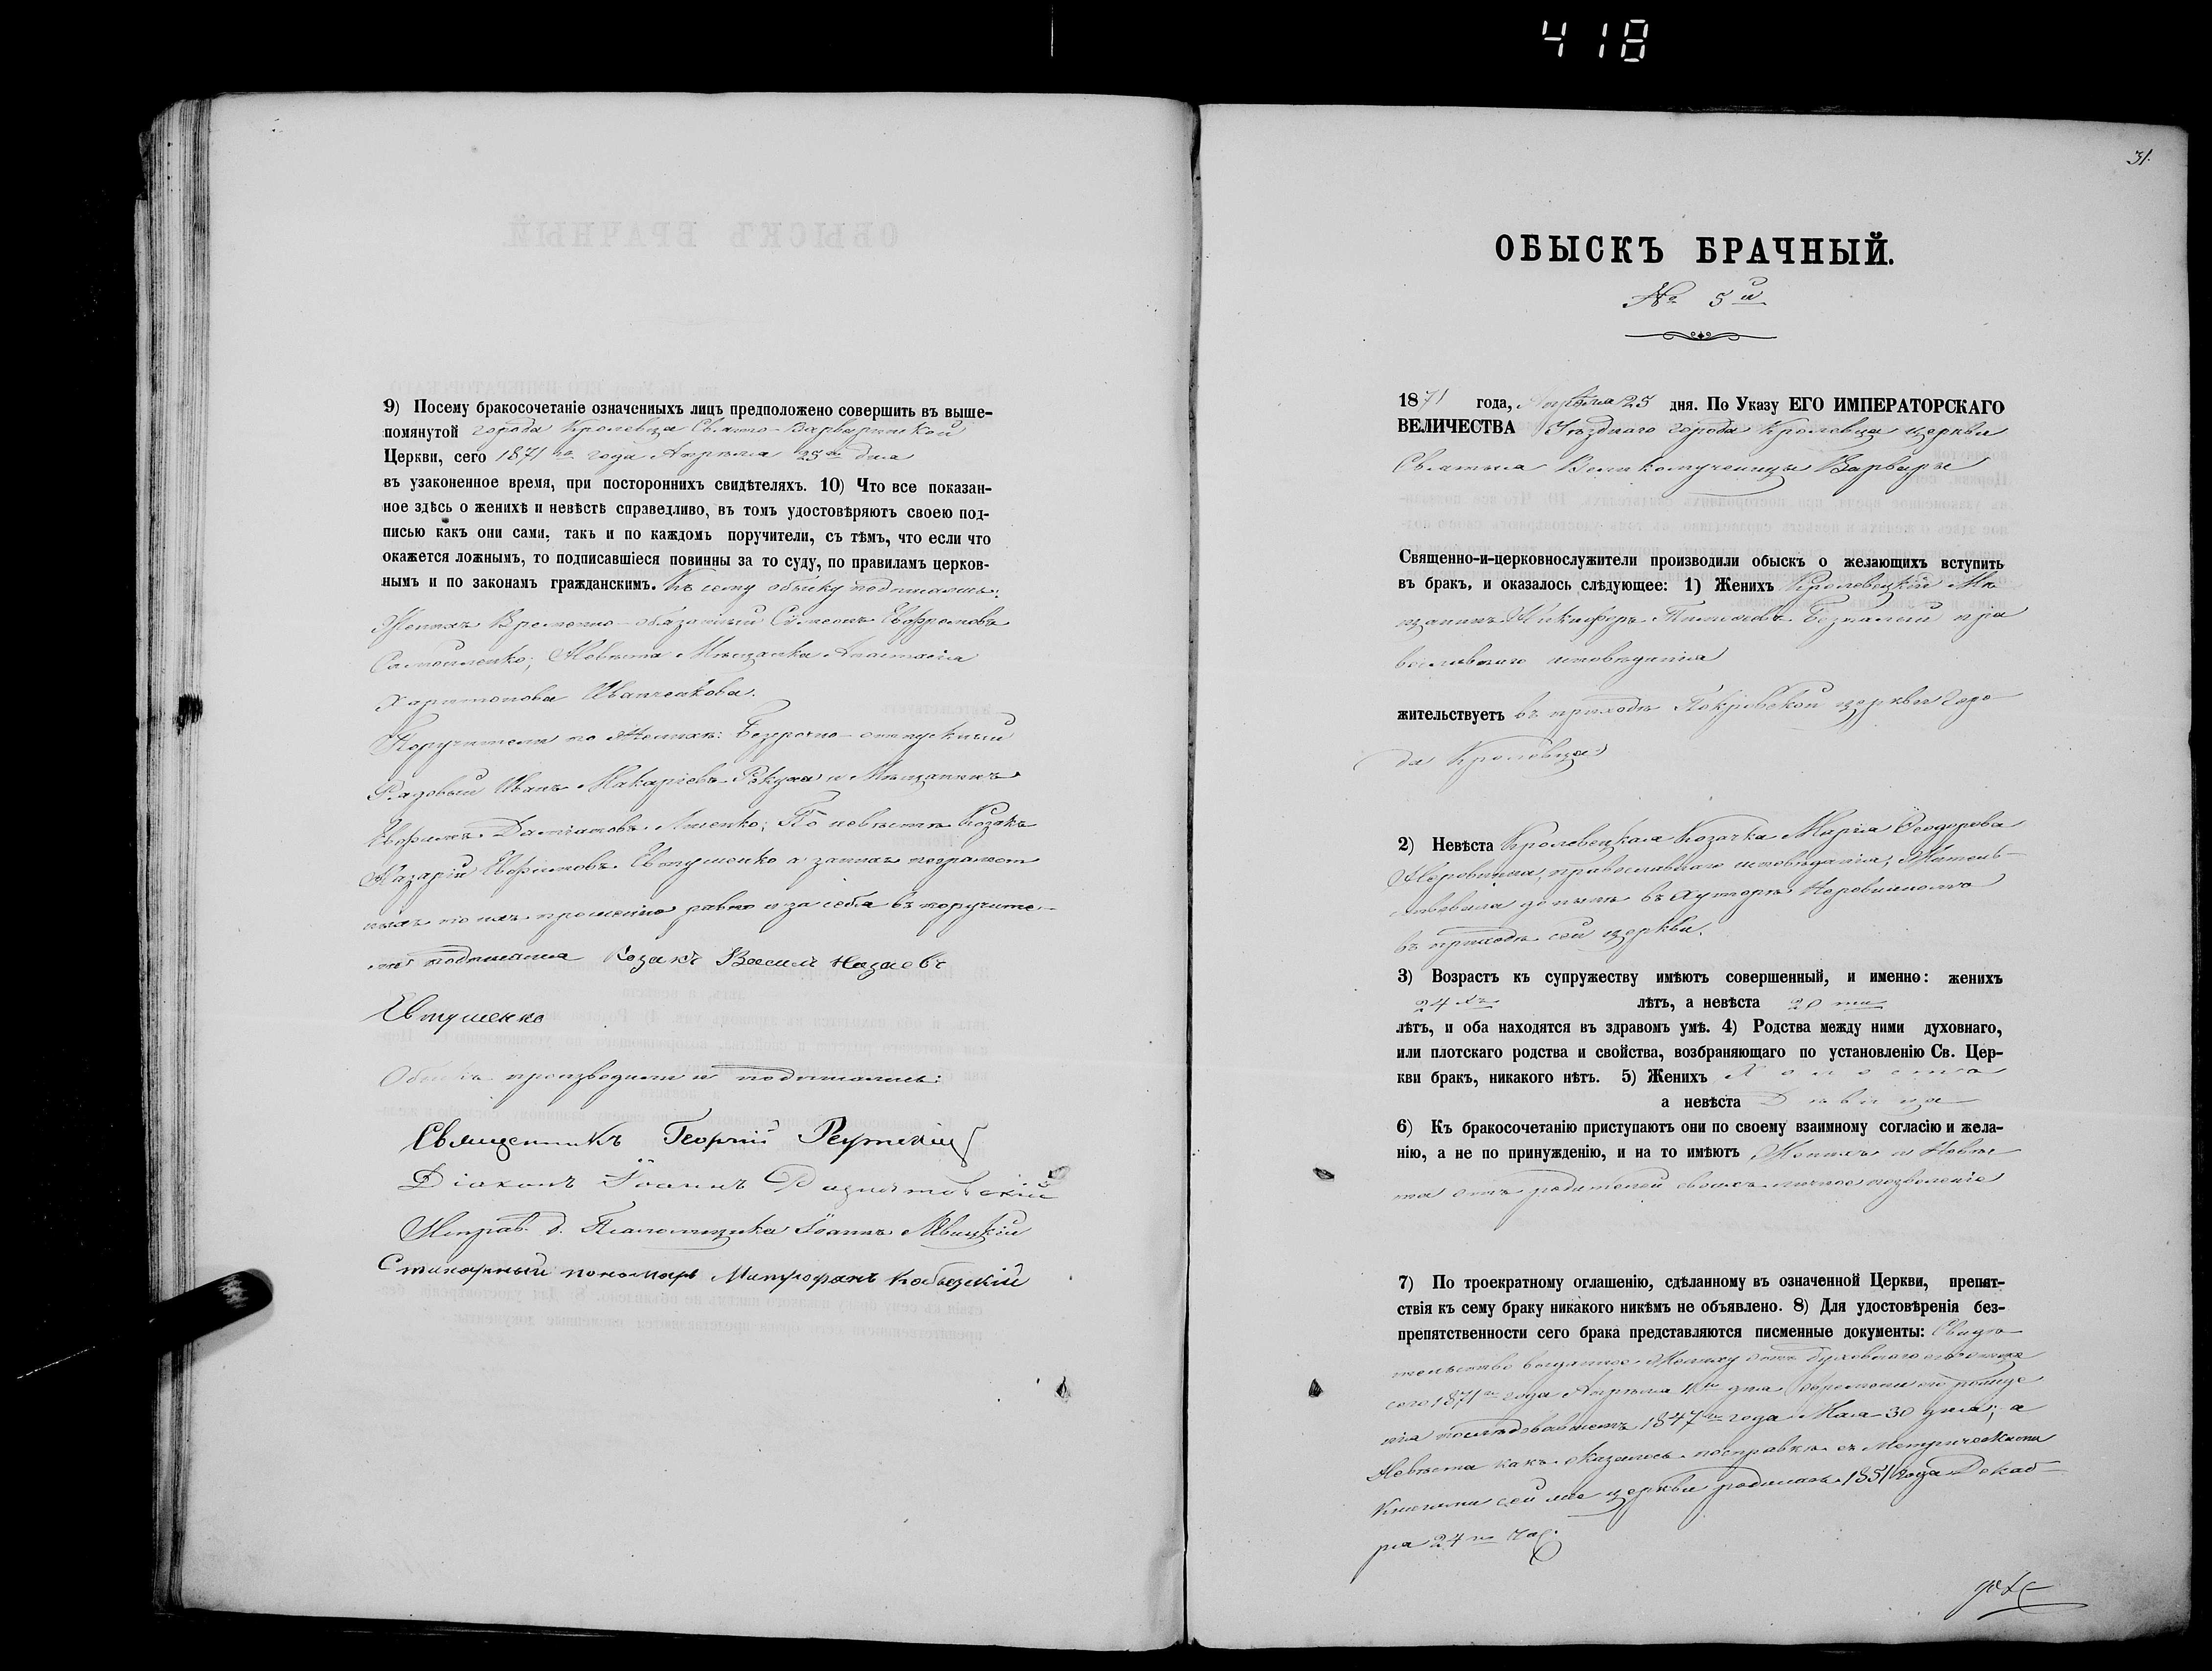 418
9) Посему бракосочетаніе означенныхъ лицъ предположено совершить въ выше-
помянутой города Кролевца Свято-Варваринской
Церкви, сего 1871го года Апрѣля 25го дня
въ узаконенное время, при постороннихъ свидѣтеляхъ. 10) Что все показан-
ное здѣсь о женихѣ и невѣстѣ справедливо, въ томъ удостовѣряютъ своею под-
писью какъ они сами, такъ и по каждомъ поручители, съ тѣмъ, что если что
окажется ложнымъ, то подписавшіеся повинны за то суду, по правиламъ церков-
нымъ и по законамъ гражданскимъ. Къ сему обыску подписались:
Женихъ Временно-обязанный Симеонъ Евфремовъ
Самойленко; Невѣста Мѣщанка Анастасія
Харитонова Иванченкова.
Поручители по Женихѣ: Безсрочно-отпускный
Рядовый Иванъ Макаріевъ и Мѣщанинъ
Евфимъ Даміановъ; По невѣстѣ Козакъ
Назарій Евфимовъ Евтушенко а за нихъ неграмот
ныхъ по ихъ прошенію равно и за себя въ поручите-
подписался Козакъ Василъ
Евтушенко
Обыскъ производили и подписались:
Священникъ Георгій
Діаконъ Іоаннъ
Исправ. д. Псаломщика Іоаннъ
Стихарный пономарь Митрофанъ
31.
ОБЫСКЪ БРАЧНЫЙ.
№ 5й
1871 года, Апрѣля 25 дня. По Указу ЕГО ИМПЕРАТОРСКАГО
ВЕЛИЧЕСТВА Уѣзднаго города Кролевца церкви
Святыя Великомученицы Варвары
Священно-и-церковнослужители производили обыскъ о желающихъ вступить
въ бракъ, и оказалось слѣдующее: 1) Женихъ Кролевецкій Мѣ
щанинъ Никифоръ Безпалый пра
вославнаго исповѣданія
жительствуетъ въ приходѣ Покровской церкви горо
да Кролевца
2) Невѣста Кролевецкая Козачка Марія Ѳеодорова
православнаго исповѣданія, Житель-
ствовала донынѣ въ Хуторѣ
въ приходѣ сей церкви.
3) Возрастъ къ супружеству имѣютъ совершенный, и именно: женихъ
24хъ лѣтъ, а невѣста 20ти
лѣтъ, и оба находятся въ здравомъ умѣ. 4) Родства между ними духовнаго,
или плотскаго родства и свойства, возбраняющаго по установленію Св. Цер-
кви бракъ, никакого нѣтъ. 5) Женихъ Холостъ
а невѣста Дѣвица
6) Къ бракосочетанію приступаютъ они по своему взаимному согласію и жела-
нію, а не по принужденію, и на то имѣютъ Женихъ и Невѣс
та отъ родителей своихъ личное позволеніе
7) По троекратному оглашенію, сдѣланному въ означенной Церкви, препят-
ствія къ сему браку никакого никѣмъ не объявлено. 8) Для удостовѣренія без-
препятственности сего брака представляются писменные документы: Свидѣ
тельство выданное Жениху отъ Духовнаго его отца
сего 1871го года Апрѣля дня о времени его рожде
нія послѣдовавшемъ 1847го года Мая 30 дня; а
Невѣста какъ оказалось по справкѣ съ Метрическими
Книгами сей же церкви родилась 1851 года Декаб-
ря 24го